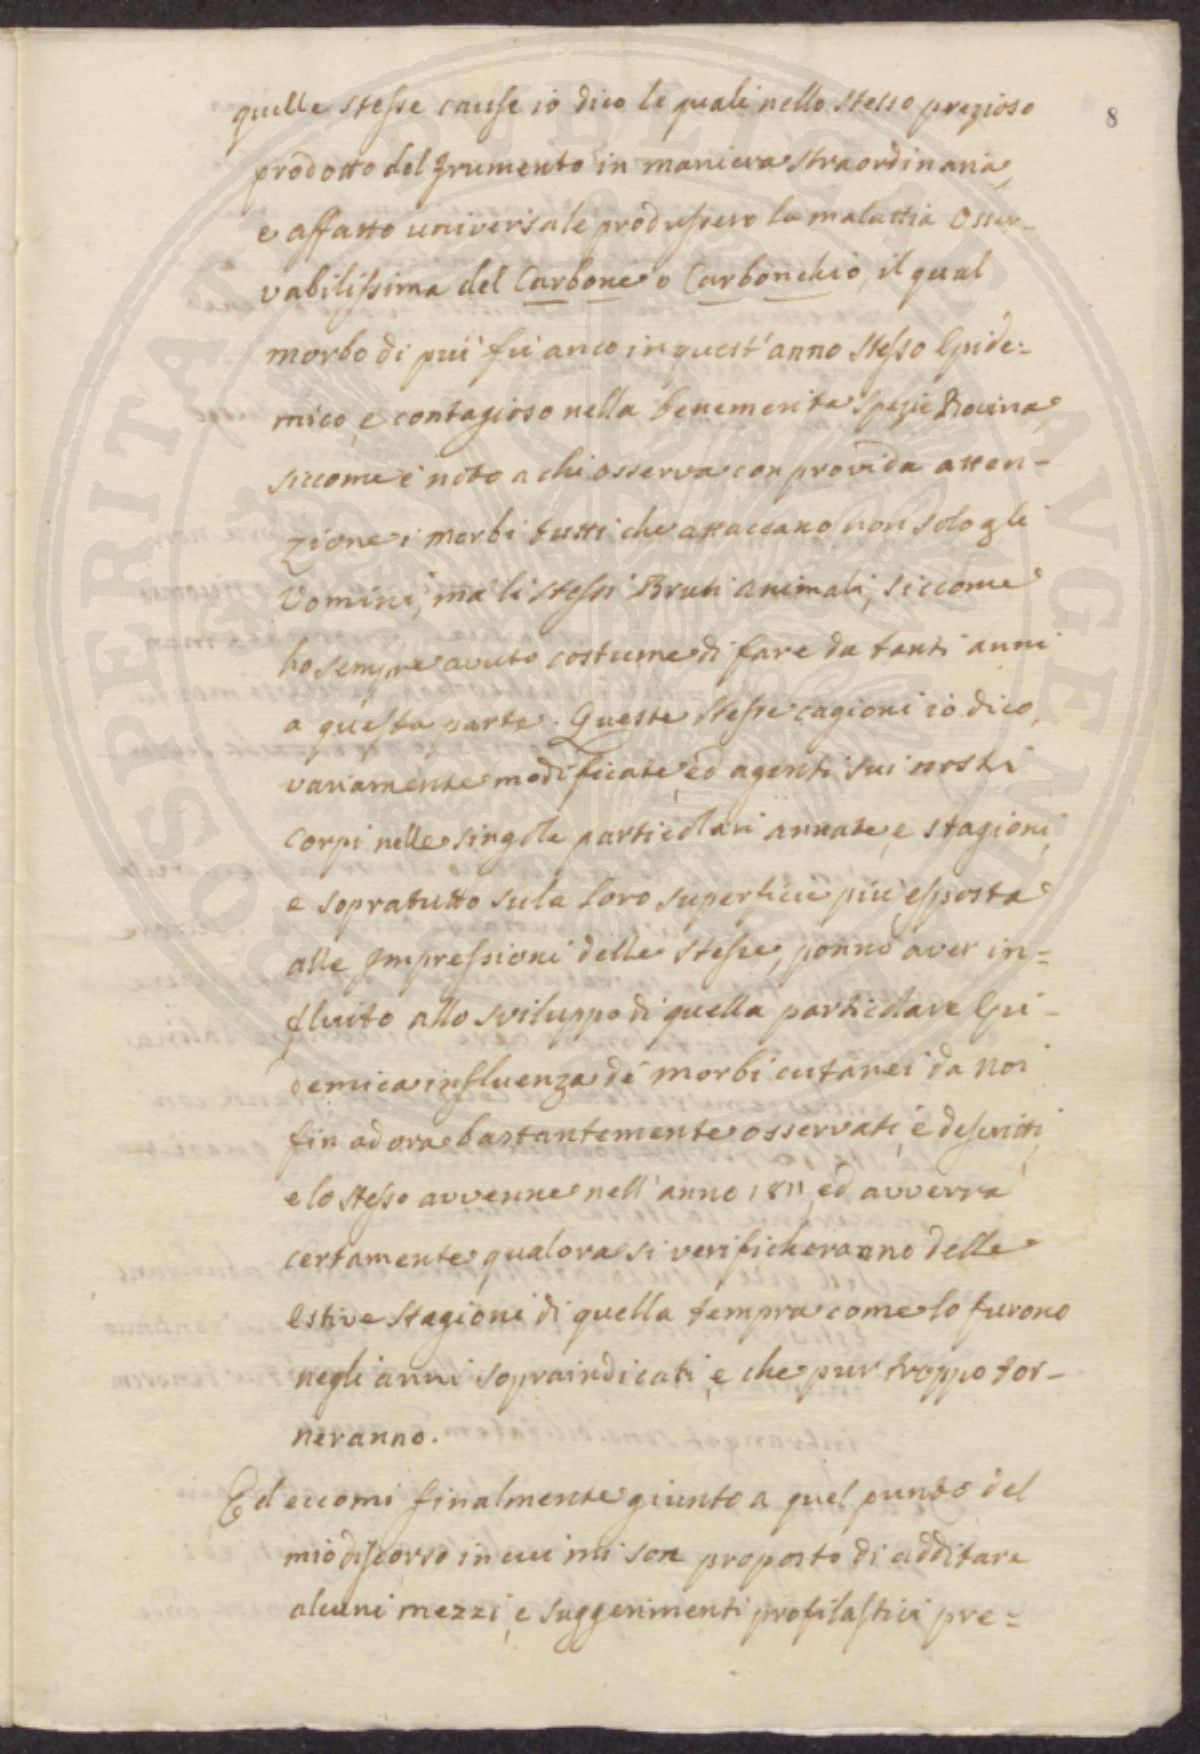 8
quelle stesse cause io dico le quali nello stesso prezioso
prodotto del frumento in maniera straordinaria,
e affatto universale produssero la malattia osser-
vabilissima del Carbone o Carbonchio, il qual
morbo di piú fú anco in quest'anno stesso Epide=
mico, e contagioso nella benemerita spezie Bovina,
siccome è noto a chi osserva con provida atten-
zione i morbi tutti che attaccano non solo gli
Vomini, má li stessi Bruti animali, siccome
ho sempre avuto costume di fare da tanti anni
a questa parte. Queste stesse cagioni io dico,
variamente modificate, ed agenti sui nostri
corpi nelle singole particolari annate, e stagioni,
e sopratutto sula loro superficie piú esposta
alle Impressioni delle stesse, ponno aver in=
fluito allo sviluppo di quella particolare Epi-
demica influenza dé morbi cutanei da noi
fin ad ora bastantemente osservati, e descritti,
e lo stesso avvenne nell'anno 1811, ed avverra
certamente qualora si verificheranno delle
Estive stagioni di quella tempra come lo furono
negli anni sopraindicati, e che pur troppo tor-
neranno.
Ed eccomi finalmente giunto a quel punto del
mio discorso in cui mi son proposto di additare
alcuni mezzi, e suggerimenti profilastici pre=
PROSPERITATI PVBLICAE AVGENDAE